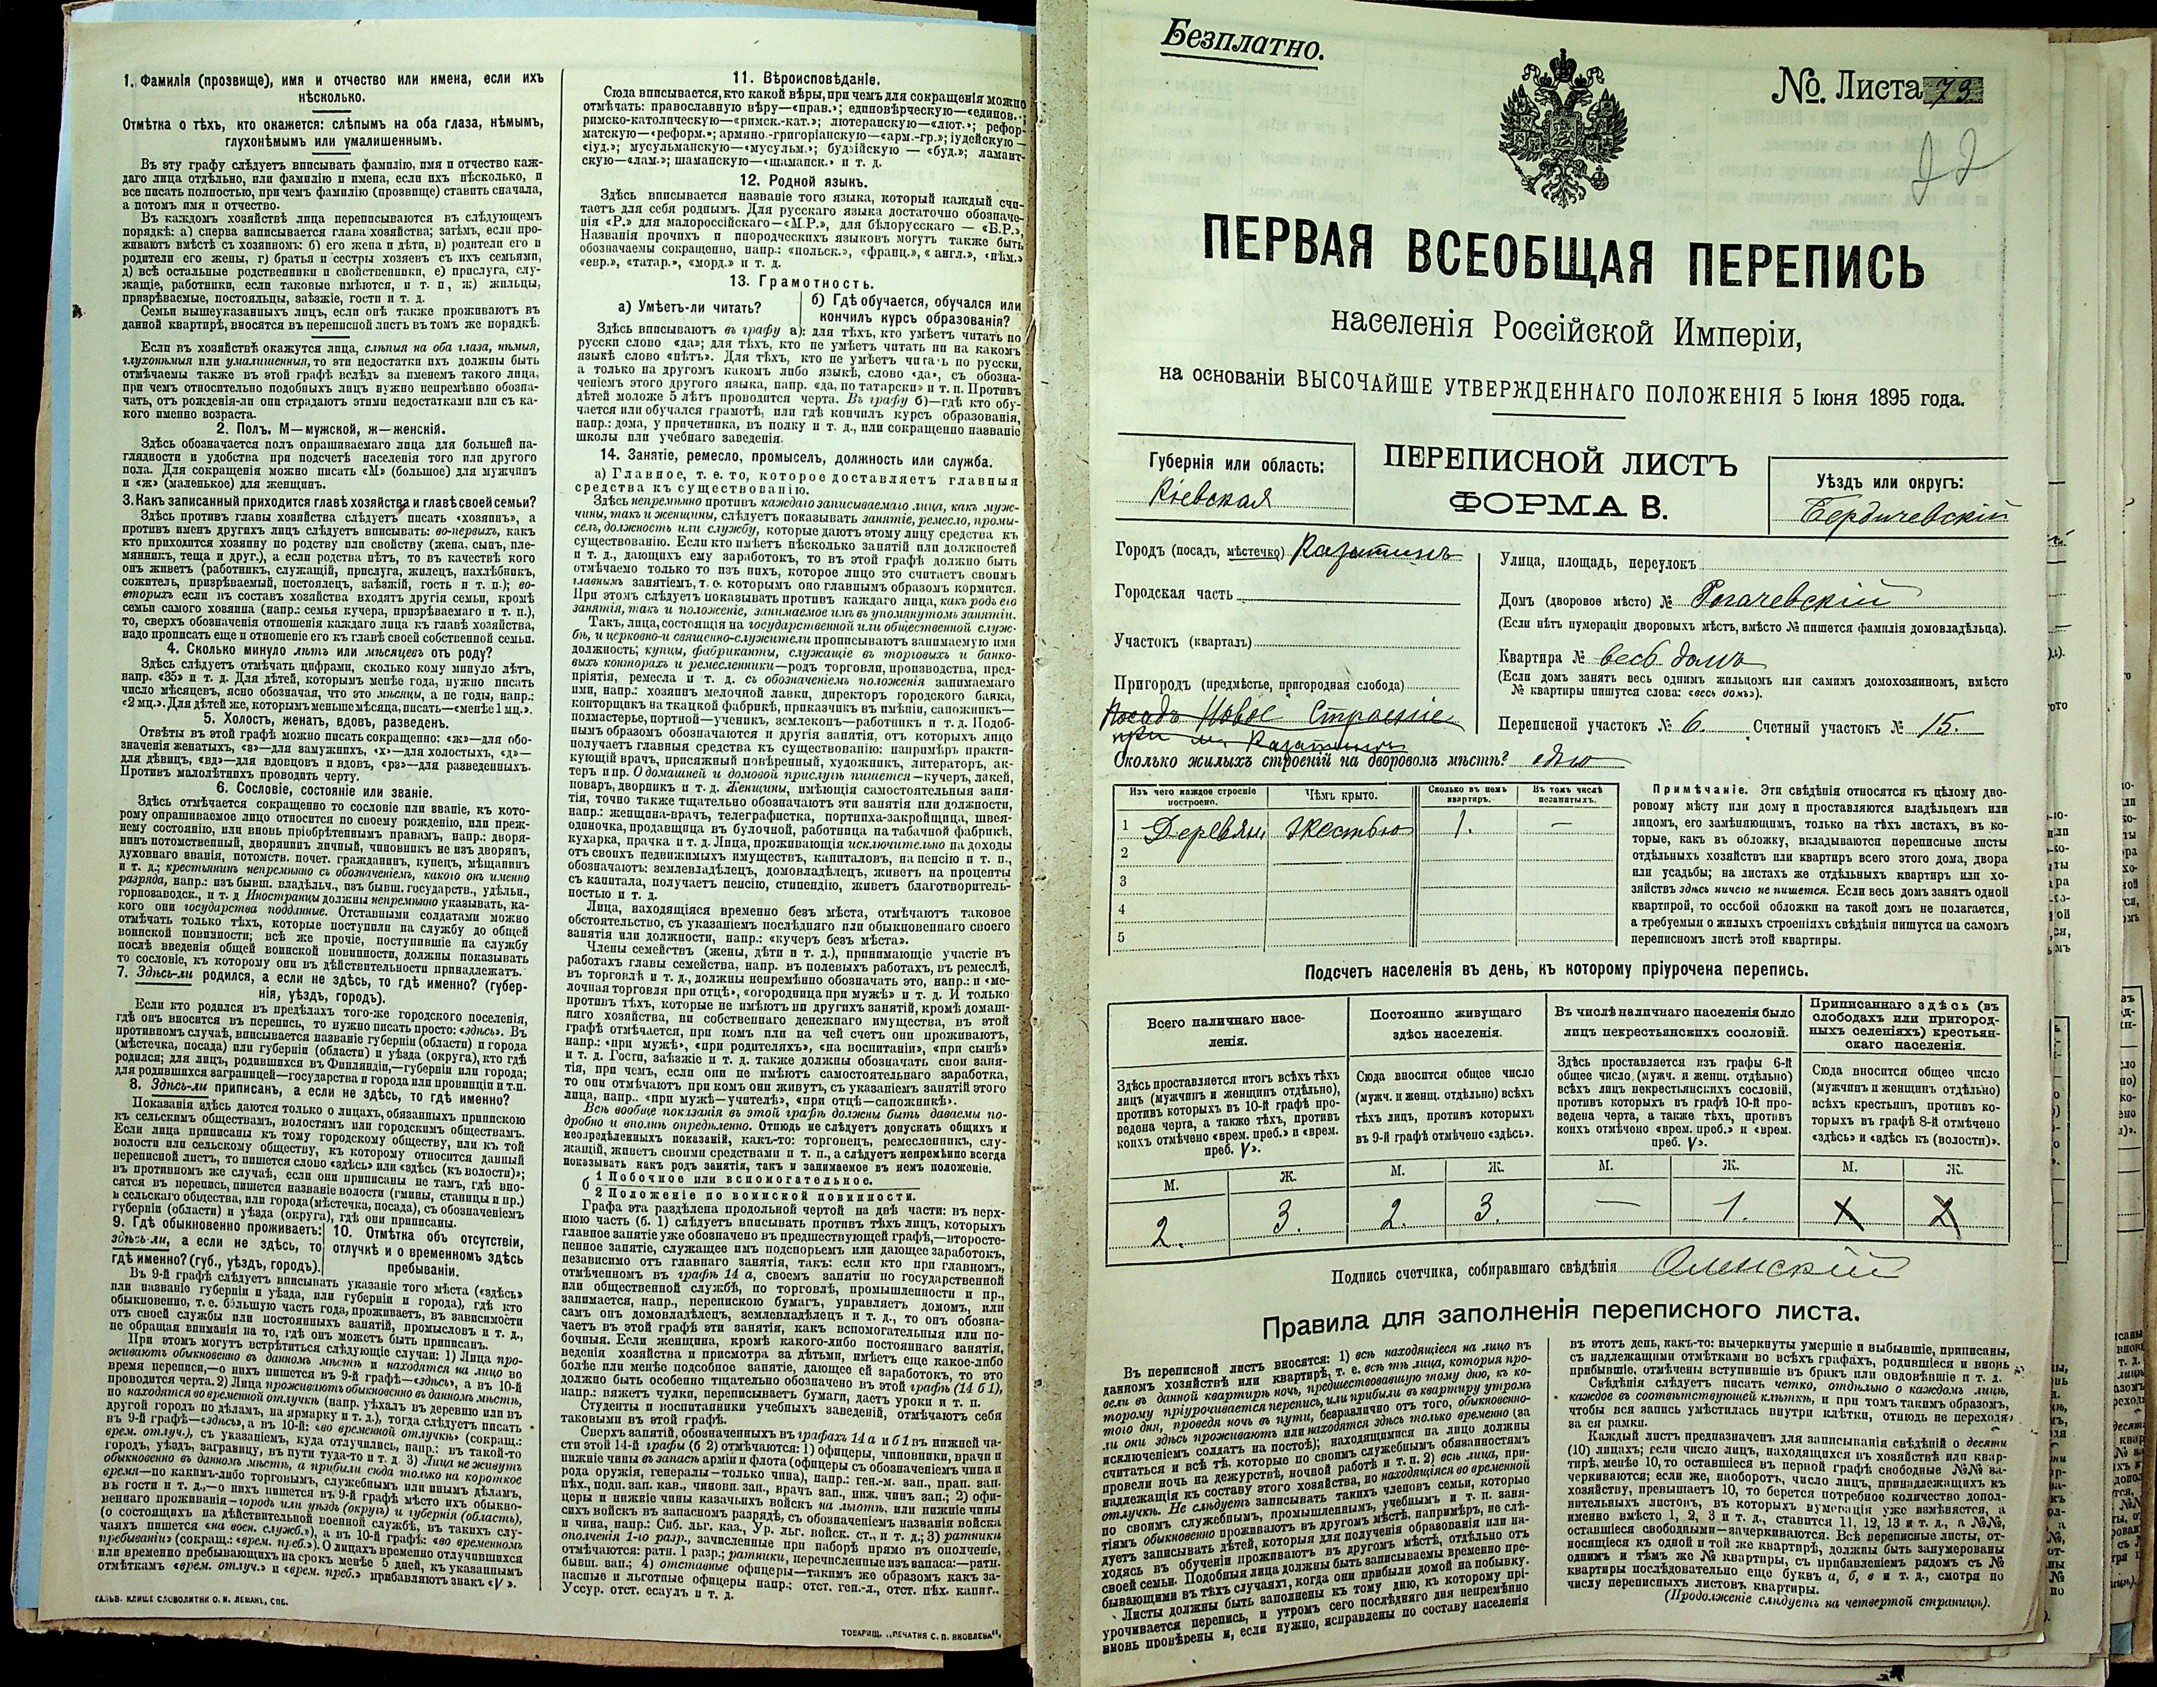 1. Фамилія (прозвище), имя и отчество или имена, если ихъ
нѣсколько.
Отмѣтка о тѣхъ, кто окажется: слѣпымъ на оба глаза, нѣмымъ,
глухонѣмымъ или умалишеннымъ.
Въ эту графу слѣдуетъ вписывать фамилію, имя и отчество каж-
даго лица отдѣльно, или фамилію и имена, если ихъ нѣсколько, и
все писать полностью, при чемъ фамилію (прозвище) ставить сначала,
а потомъ имя и отчество.
Въ каждомъ хозяйствѣ лица переписываются въ слѣдующемъ
порядкѣ: а) сперва записывается глава хозяйства; затѣмъ, если про-
живаютъ вмѣстѣ съ хозяиномъ: б) его жена и дѣти, в) родители его и
родители его жены, г) братья и сестры хозяевъ съ ихъ семьями,
д) всѣ остальные родственники и свойственники, е) прислуга, слу-
жащіе, работники, если таковые имѣются, и т. п, ж) жильцы,
призрѣваемые, постояльцы, заѣзжіе, гости и т. д.
Семьи вышеуказанныхъ лицъ, если онѣ также проживаютъ въ
данной квартирѣ, вносятся въ переписной листъ въ томъ же порядкѣ.
Если въ хозяйствѣ окажутся лица, слѣпыя на оба глаза, нѣмыя,
глухонѣмыя или умалишенныя, то эти недостатки ихъ должны быть
отмѣчаемы также въ этой графѣ вслѣдъ за именемъ такого лица,
при чемъ относительно подобныхъ лицъ нужно непремѣнно обозна-
чать, отъ рожденія-ли они страдаютъ этими недостатками или съ ка-
кого именно возраста.
2. Полъ. М—мужской, ж—женскій.
Здѣсь обозначается полъ опрашиваемаго лица для большей на-
глядности и удобства при подсчетѣ населенія того или другого
пола. Для сокращенія можно писать «М» (большое) для мужчинъ
и «ж» (маленькое) для женщинъ.
3. Какъ записанный приходится главѣ хозяйства и главѣ своей семьи?
Здѣсь противъ главы хозяйства слѣдуетъ писать «хозяинъ», а
противъ именъ другихъ лицъ слѣдуетъ вписывать: во-первыхъ, какъ
кто приходится хозяину по родству или свойству (жена, сынъ, пле-
мянникъ, теща и друг.), а если родства нѣтъ, то въ качествѣ кого
онъ живетъ (работникъ, служащій, прислуга, жилецъ, нахлѣбникъ,
сожитель, призрѣваемый, постоялецъ, заѣзжій, гость и т. п.); во-
вторыхъ если въ составъ хозяйства входятъ другія семьи, кромѣ
семьи самого хозяина (напр.: семья кучера, призрѣваемаго и т. п.),
то, сверхъ обозначенія отношенія каждаго лица къ главѣ хозяйства,
надо прописать еще и отношеніе его къ главѣ своей собственной семьи.
4. Сколько минуло лѣтъ или мѣсяцевъ отъ роду?
Здѣсь слѣдуетъ отмѣчать цифрами, сколько кому минуло лѣтъ,
напр. «35» и т. д. Для дѣтей, которымъ менѣе года, нужно писать
число мѣсяцевъ, ясно обозначая, что это мѣсяцы, а не годы, напр.:
«2 мц.». Для дѣтей же, которымъ меньше мѣсяца, писать—«менѣе 1 мц.».
5. Холостъ, женатъ, вдовъ, разведенъ.
Отвѣты въ этой графѣ можно писать сокращенно: «ж»—для обо-
значенія женатыхъ, «з»—для замужнихъ, «х»—для холостыхъ, «д»—
для дѣвицъ, «вд»—для вдовцовъ и вдовъ, «рз»—для разведенныхъ.
Противъ малолѣтнихъ проводить черту.
6. Сословіе, состояніе или званіе.
Здѣсь отмѣчается сокращенно то сословіе или званіе, къ кото-
рому опрашиваемое лицо относится по своему рожденію, или преж-
нему состоянію, или вновь пріобрѣтеннымъ правамъ, напр.: дворя-
нинъ потомственный, дворянинъ личный, чиновникъ не изъ дворянъ,
духовнаго званія, потомств. почет. гражданинъ, купецъ, мѣщанинъ
и т. д.; крестьянинъ непремѣнно съ обозначеніемъ, какого онъ именно
разряда, напр.: изъ бывш. владѣльч., изъ бывш. государств., удѣльн.,
горнозаводск., и т. д Иностранцы должны непремѣнно указывать, ка-
кого они государства подданные. Отставными солдатами можно
отмѣчать только тѣхъ, которые поступили на службу до общей
воинской повинности; всѣ же прочіе, поступившіе на службу
послѣ введенія общей воинской повинности, должны показывать
то сословіе, къ которому они въ дѣйствительности принадлежатъ.
7. Здѣсь-ли родился, а если не здѣсь, то гдѣ именно? (губер-
нія, уѣздъ, городъ).
Если кто родился въ предѣлахъ того-же городского поселенія,
гдѣ онъ вносится въ перепись, то нужно писать просто: «здѣсь». Въ
противномъ случаѣ, вписывается названіе губерніи (области) и города
(мѣстечка, посада) или губерніи (области) и уѣзда (округа), гдѣ кто
родился; для лицъ, родившихся въ Финляндіи,—губерніи или города;
для родившихся заграницей—государства и города или провинціи и т.п.
8. Здѣсь-ли приписанъ, а если не здѣсь, то гдѣ именно?
Показанія здѣсь даются только о лицахъ, обязанныхъ припискою
къ сельскимъ обществамъ, волостямъ или городскимъ обществамъ.
Если лица приписаны къ тому городскому обществу, или къ той
волости или сельскому обществу, къ которому относится данный
переписной листъ, то пишется слово «здѣсь» или «здѣсь (къ волости)»;
въ противномъ же случаѣ, если они приписаны не тамъ, гдѣ вно-
сятся въ перепись, пишется названіе волости (гмины, станицы и пр.)
и сельскаго общества, или города (мѣстечка, посада), съ обозначеніемъ
губерніи (области) и уѣзда (округа), гдѣ они приписаны.
9. Гдѣ обыкновенно проживаетъ:
здѣсь-ли, а если не здѣсь, то
гдѣ именно? (губ., уѣздъ, городъ).
10. Отмѣтка объ отсутствіи,
отлучкѣ и о временномъ здѣсь
пребываніи.
Въ 9-й графѣ слѣдуетъ вписывать указаніе того мѣста («здѣсь»
или названіе губерніи и уѣзда, или губерніи и города), гдѣ кто
обыкновенно, т. е. бо́льшую часть года, проживаетъ, въ зависимости
отъ своей службы или постоянныхъ занятій, промысловъ и т. д.,
не обращая вниманія на то, гдѣ онъ можетъ быть приписанъ.
При этомъ могутъ встрѣтиться слѣдующіе случаи: 1) Лица про-
живаютъ обыкновенно въ данномъ мѣстѣ и находятся на лицо во
время переписи,—о нихъ пишется въ 9-й графѣ—«здѣсь», а въ 10-й
проводится черта. 2) Лица проживаютъ обыкновенно въ данномъ мѣстѣ,
но находятся во временной отлучкѣ (напр. уѣхалъ въ деревню или въ
другой городъ по дѣламъ, на ярмарку и т. д.), тогда слѣдуетъ писать
въ 9-й графѣ—«здѣсь», а въ 10-й: «во временной отлучкѣ» (сокращ.:
врем. отлуч.), съ указаніемъ, куда отлучились, напр.: въ такой-то
городъ, уѣздъ, заграницу, въ пути туда-то и т. д. 3) Лица не живутъ
обыкновенно въ данномъ мѣстѣ, а прибыли сюда только на короткое
время—по какимъ-либо торговымъ, служебнымъ или инымъ дѣламъ,
въ гости и т. д.,—о нихъ пишется въ 9-й графѣ мѣсто ихъ обыкно-
веннаго проживанія—городъ или уѣздъ (округъ) и губернія (область),
(о состоящихъ на дѣйствительной военной службѣ, въ такихъ слу-
чаяхъ пишется «на воен. службѣ»), а въ 10-й графѣ: «во временномъ
пребываніи» (сокращ.: «врем. преб.»). О лицахъ временно отлучившихся
или временно пребывающихъ на срокъ менѣе 5 дней, къ указаннымъ
отмѣткамъ «врем. отлуч.» и «врем. преб.» прибавляютъ знакъ «V».
ГАЛЬВ. КЛИШЕ СЛОВОЛИТНИ О. И. ЛЕМАНЪ, СПБ.
11. Вѣроисповѣданіе.
Сюда вписывается, кто какой вѣры, при чемъ для сокращенія можно
отмѣчать: православную вѣру—«прав.»; единовѣрческую—«единов.»;
римско-католическую—«римск.-кат.»; лютеранскую—«лют.»; рефор-
матскую—«реформ.»; армяно-григоріанскую—«арм.-гр.»; іудейскую—
«іуд.»; мусульманскую—«мусульм.»; буддійскую — «буд.»; ламаит-
скую—«лам.»; шаманскую—«шаманск.» и т. д.
12. Родной языкъ.
Здѣсь вписывается названіе того языка, который каждый счи-
таетъ для себя роднымъ. Для русскаго языка достаточно обозначе-
нія «Р.» для малороссійскаго—«М.Р.», для бѣлорусскаго — «Б.Р.»,
Названія прочихъ и инородческихъ языковъ могутъ также быть
обозначаемы сокращенно, напр.: «польск.», «франц.», «англ.», «нѣм.»
«евр.», «татар.», «морд.» и т. д.
13. Грамотность.
а) Умѣетъ-ли читать?
б) Гдѣ обучается, обучался или
кончилъ курсъ образованія?
Здѣсь вписываютъ въ графу а): для тѣхъ, кто умѣетъ читать по
русски слово «да»; для тѣхъ, кто не умѣетъ читать ни на какомъ
языкѣ слово «нѣтъ». Для тѣхъ, кто не умѣетъ читать по русски,
а только на другомъ какомъ либо языкѣ, слово «да», съ обозна-
ченіемъ этого другого языка, напр. «да, по татарски» и т. п. Противъ
дѣтей моложе 5 лѣтъ проводится черта. Въ графу б)—гдѣ кто обу-
чается или обучался грамотѣ, или гдѣ кончилъ курсъ образованія,
напр.: дома, у причетника, въ полку и т. д., или сокращенно названіе
школы или учебнаго заведенія.
14. Занятіе, ремесло, промыселъ, должность или служба.
а) Главное, т. е. то, которое доставляетъ главныя
средства къ существованію.
Здѣсь непремѣнно противъ каждаго записываемаго лица, какъ муж-
чины, такъ и женщины, слѣдуетъ показывать занятіе, ремесло, промы-
селъ, должность или службу, которые даютъ этому лицу средства къ
существованію. Если кто имѣетъ нѣсколько занятій или должностей
и т. д., дающихъ ему заработокъ, то въ этой графѣ должно быть
отмѣчаемо только то изъ нихъ, которое лицо это считаетъ своимъ
главнымъ занятіемъ, т. е. которымъ оно главнымъ образомъ кормится.
При этомъ слѣдуетъ показывать противъ каждаго лица, какъ родъ его
занятія, такъ и положеніе, занимаемое имъ въ упомянутомъ занятіи.
Такъ, лица, состоящія на государственной или общественной служ-
бѣ, и церковно- и священно-служители прописываютъ занимаемую ими
должность; купцы, фабриканты, служащіе въ торговыхъ и банко-
выхъ конторахъ и ремесленники—родъ торговли, производства, пред-
пріятія, ремесла и т. д. съ обозначеніемъ положенія занимаемаго
ими, напр.: хозяинъ мелочной лавки, директоръ городского банка,
конторщикъ на ткацкой фабрикѣ, приказчикъ въ имѣніи, сапожникъ—
подмастерье, портной—ученикъ, землекопъ—работникъ и т. д. Подоб-
нымъ образомъ обозначаются и другія занятія, отъ которыхъ лицо
получаетъ главныя средства къ существованію: напримѣръ практи-
кующій врачъ, присяжный повѣренный, художникъ, литераторъ, ак-
теръ и пр. О домашней и домовой прислугѣ пишется—кучеръ, лакей,
поваръ, дворникъ и т. д. Женщины, имѣющія самостоятельныя заня-
тія, точно также тщательно обозначаютъ эти занятія или должности,
напр.: женщина-врачъ, телеграфистка, портниха-закройщица, швея-
одиночка, продавщица въ булочной, работница на табачной фабрикѣ,
кухарка, прачка и т. д. Лица, проживающія исключительно на доходы
отъ своихъ недвижимыхъ имуществъ, капиталовъ, на пенсію и т. п.,
обозначаютъ: землевладѣлецъ, домовладѣлецъ, живетъ на проценты
съ капитала, получаетъ пенсію, стипендію, живетъ благотворитель-
ностью и т. д.
Лица, находящіяся временно безъ мѣста, отмѣчаютъ таковое
обстоятельство, съ указаніемъ послѣдняго или обыкновеннаго своего
занятія или должности, напр.: «кучеръ безъ мѣста».
Члены семействъ (жены, дѣти и т. д.), принимающіе участіе въ
работахъ главы семейства, напр. въ полевыхъ работахъ, въ ремеслѣ,
въ торговлѣ и т. д., должны непремѣнно обозначать это, напр.: и «ме-
лочная торговля при отцѣ», «огородница при мужѣ» и т. д. И только
противъ тѣхъ, которые не имѣютъ ни другихъ занятій, кромѣ домаш-
няго хозяйства, ни собственнаго денежнаго имущества, въ этой
графѣ отмѣчается, при комъ или на чей счетъ они проживаютъ,
напр.: «при мужѣ», «при родителяхъ», «на воспитаніи», «при сынѣ»
и т. д. Гости, заѣзжіе и т. д. также должны обозначать свои заня-
тія, при чемъ, если они не имѣютъ самостоятельнаго заработка,
то они отмѣчаютъ при комъ они живутъ, съ указаніемъ занятій этого
лица, напр.. «при мужѣ—учителѣ», «при отцѣ—сапожникѣ».
Всѣ вообще показанія въ этой графѣ должны быть даваемы по-
дробно и вполнѣ опредѣленно. Отнюдь не слѣдуетъ допускать общихъ и
неопредѣленныхъ показаній, какъ-то: торговецъ, ремесленникъ, слу-
жащій, живетъ своими средствами и т. п., а слѣдуетъ непремѣнно всегда
показывать какъ родъ занятія, такъ и занимаемое въ немъ положеніе.
б 1 Побочное или вспомогательное.
2 Положеніе по воинской повинности.
Графа эта раздѣлена продольной чертой на двѣ части: въ верх-
нюю часть (б. 1) слѣдуетъ вписывать противъ тѣхъ лицъ, которыхъ
главное занятіе уже обозначено въ предшествующей графѣ,—второсте-
пенное занятіе, служащее имъ подспорьемъ или дающее заработокъ,
независимо отъ главнаго занятія, такъ: если кто при главномъ,
отмѣченномъ въ графѣ 14 а, своемъ занятіи по государственной
или общественной службѣ, по торговлѣ, промышленности и пр.,
занимается, напр., перепискою бумагъ, управляетъ домомъ, или
самъ онъ домовладѣлецъ, землевладѣлецъ и т. д., то онъ обозна-
чаетъ въ этой графѣ эти занятія, какъ вспомогательныя или по-
бочныя. Если женщина, кромѣ какого-либо постояннаго занятія,
веденія хозяйства и присмотра за дѣтьми, имѣетъ еще какое-либо
болѣе или менѣе подсобное занятіе, дающее ей заработокъ, то это
должно быть особенно тщательно обозначено въ этой графѣ (14 б 1),
напр.: вяжетъ чулки, переписываетъ бумаги, даетъ уроки и т. п.
Студенты и воспитанники учебныхъ заведеній, отмѣчаютъ себя
таковыми въ этой графѣ.
Сверхъ занятій, обозначенныхъ въ графахъ 14 а и б 1 въ нижней ча-
сти этой 14-й графы (б 2) отмѣчаются: 1) офицеры, чиновники, врачи и
нижніе чины въ запасѣ арміи и флота (офицеры съ обозначеніемъ чина и
рода оружія, генералы—только чина), напр.: ген.-м. зап., прап. зап.
пѣх., подп. зап. кав., чиновн. зап., врачъ зап., ниж. чинъ зап.; 2) офи-
церы и нижніе чины казачьихъ войскъ на льготѣ, или нижніе чины
сихъ войскъ въ запасномъ разрядѣ, съ обозначеніемъ названія войска
и чина, напр.: Сиб. льг. каз., Ур. льг. войск. ст., и т. д.; 3) ратники
ополченія 1-го разр., зачисленные при наборѣ прямо въ ополченіе,
отмѣчаются: ратн. 1 разр.; ратники, перечисленные изъ запаса:—ратн.
бывш. зап.; 4) отставные офицеры—такимъ же образомъ какъ за-
пасные и льготные офицеры напр.: отст. ген.-л., отст. пѣх. капит.,
Уссур. отст. есаулъ и т. д.
ТОВАРИЩ. „ПЕЧАТНЯ С. П. ЯКОВЛЕВА“.
Безплатно.
№ Листа 73
22
ПЕРВАЯ ВСЕОБЩАЯ ПЕРЕПИСЬ
населенія Россійской Имперіи,
на основаніи ВЫСОЧАЙШЕ УТВЕРЖДЕННАГО ПОЛОЖЕНІЯ 5 Іюня 1895 года.
Губернія или область:
Кіевская
ПЕРЕПИСНОЙ ЛИСТЪ
ФОРМА В.
Уѣздъ или округъ:
Бердичевскій
Городъ (посадъ, мѣстечко) Казатинъ
Городская часть
Участокъ (кварталъ)
Пригородъ (предмѣстье, пригородная слобода)
Посадъ Новое Строеніе
при м. Казатинѣ
Улица, площадь, переулокъ
Домъ (дворовое мѣсто) № Рогачевскій
(Если нѣтъ нумераціи дворовыхъ мѣстъ, вмѣсто № пишется фамилія домовладѣльца).
Квартира № весь домъ
(Если домъ занятъ весь однимъ жильцомъ или самимъ домохозяиномъ, вмѣсто
№ квартиры пишутся слова: «весь домъ»).
Переписной участокъ № 6. Счетный участокъ № 15.
Сколько жилыхъ строеній на дворовомъ мѣстѣ?
Изъ чего каждое строеніе
построено.
Чѣмъ крыто.
Сколько въ немъ
квартиръ.
Въ томъ числѣ
незанятыхъ.
1 Деревян. Жестью 1. —
2
3
4
5
Примѣчаніе. Эти свѣдѣнія относятся къ цѣлому дво-
ровому мѣсту или дому и проставляются владѣльцемъ или
лицомъ, его замѣняющимъ, только на тѣхъ листахъ, въ ко-
торые, какъ въ обложку, вкладываются переписные листы
отдѣльныхъ хозяйствъ или квартиръ всего этого дома, двора
или усадьбы; на листахъ же отдѣльныхъ квартиръ или хо-
зяйствъ здѣсь ничего не пишется. Если весь домъ занятъ одной
квартирой, то особой обложки на такой домъ не полагается,
а требуемыя о жилыхъ строеніяхъ свѣдѣнія пишутся на самомъ
переписномъ листѣ этой квартиры.
Подсчетъ населенія въ день, къ которому пріурочена перепись.
Всего наличнаго насе-
ленія.
Здѣсь проставляется итогъ всѣхъ тѣхъ
лицъ (мужчинъ и женщинъ отдѣльно),
противъ которыхъ въ 10-й графѣ про-
ведена черта, а также тѣхъ, противъ
коихъ отмѣчено «врем. преб.» и «врем.
преб. V».
Постоянно живущаго
здѣсь населенія.
Сюда вносится общее число
(мужч. и женщ. отдѣльно) всѣхъ
тѣхъ лицъ, противъ которыхъ
въ 9-й графѣ отмѣчено «здѣсь».
Въ числѣ наличнаго населенія было
лицъ некрестьянскихъ сословій.
Здѣсь проставляется изъ графы 6-й
общее число (мужч. и женщ. отдѣльно)
всѣхъ лицъ некрестьянскихъ сословій,
противъ которыхъ въ графѣ 10-й про-
ведена черта, а также тѣхъ, противъ
коихъ отмѣчено «врем. преб.» и «врем.
преб. V».
Приписаннаго здѣсь (въ
слободахъ или пригород-
ныхъ селеніяхъ) крестьян-
скаго населенія.
Сюда вносится общее число
(мужчинъ и женщинъ отдѣльно)
всѣхъ крестьянъ, противъ ко-
торыхъ въ графѣ 8-й отмѣчено
«здѣсь» и «здѣсь къ (волости)».
М. Ж. М. Ж. М. Ж. М. Ж.
2. 3. 2. 3. — 1.
Подпись счетчика, собиравшаго свѣдѣнія
Правила для заполненія переписного листа.
Въ переписной листъ вносятся: 1) всѣ находящіеся на лицо въ
данномъ хозяйствѣ или квартирѣ, т. е. всѣ тѣ лица, которыя про-
вели въ данной квартирѣ ночь, предшествовавшую тому дню, къ ко-
торому пріурочивается перепись, или прибыли въ квартиру утромъ
того дня, проведя ночь въ пути, безразлично отъ того, обыкновенно-
ли они здѣсь проживаютъ или находятся здѣсь только временно (за
исключеніемъ солдатъ на постоѣ); находящимися на лицо должны
считаться и всѣ тѣ, которые по своимъ служебнымъ обязанностямъ
провели ночь на дежурствѣ, ночной работѣ и т. п. 2) всѣ лица, при-
надлежащія къ составу этого хозяйства, но находящіяся во временной
отлучкѣ. Не слѣдуетъ записывать такихъ членовъ семьи, которые
по своимъ служебнымъ, промышленнымъ, учебнымъ и т. п. заня-
тіямъ обыкновенно проживаютъ въ другомъ мѣстѣ, напримѣръ, не слѣ-
дуетъ записывать дѣтей, которыя для полученія образованія или на-
ходясь въ обученіи проживаютъ въ другомъ мѣстѣ, отдѣльно отъ
своей семьи. Подобныя лица должны быть записываемы временно пре-
бывающими въ тѣхъ случаяхъ, когда они прибыли домой на побывку.
Листы должны быть заполнены къ тому дню, къ которому прі-
урочивается перепись, и утромъ сего послѣдняго дня непремѣнно
вновь провѣрены и, если нужно, исправлены по составу населенія
въ этотъ день, какъ-то: вычеркнуты умершіе и выбывшіе, приписаны,
съ надлежащими отмѣтками во всѣхъ графахъ, родившіеся и вновь
прибывшіе, отмѣчены вступившіе въ бракъ или овдовѣвшіе и т. д.
Свѣдѣнія слѣдуетъ писать четко, отдѣльно о каждомъ лицѣ,
каждое въ соотвѣтствующей клѣткѣ, и при томъ такимъ образомъ,
чтобы вся запись умѣстилась внутри клѣтки, отнюдь не переходя
за ея рамки.
Каждый листъ предназначенъ для записыванія свѣдѣній о десяти
(10) лицахъ; если число лицъ, находящихся въ хозяйствѣ или квар-
тирѣ, менѣе 10, то оставшіеся въ первой графѣ свободные №№ за-
черкиваются; если же, наоборотъ, число лицъ, принадлежащихъ къ
хозяйству, превышаетъ 10, то берется потребное количество допол-
нительныхъ листовъ, въ которыхъ нумерація уже измѣняется, а
именно вмѣсто 1, 2, 3 и т. д., ставится 11, 12, 13 и т. д., а №№,
оставшіеся свободными—зачеркиваются. Всѣ переписные листы, от-
носящіеся къ одной и той же квартирѣ, должны быть занумерованы
однимъ и тѣмъ же № квартиры, съ прибавленіемъ рядомъ съ №
квартиры послѣдовательно еще буквъ а, б, в и т. д., смотря по
числу переписныхъ листовъ квартиры.
(Продолженіе слѣдуетъ на четвертой страницѣ).